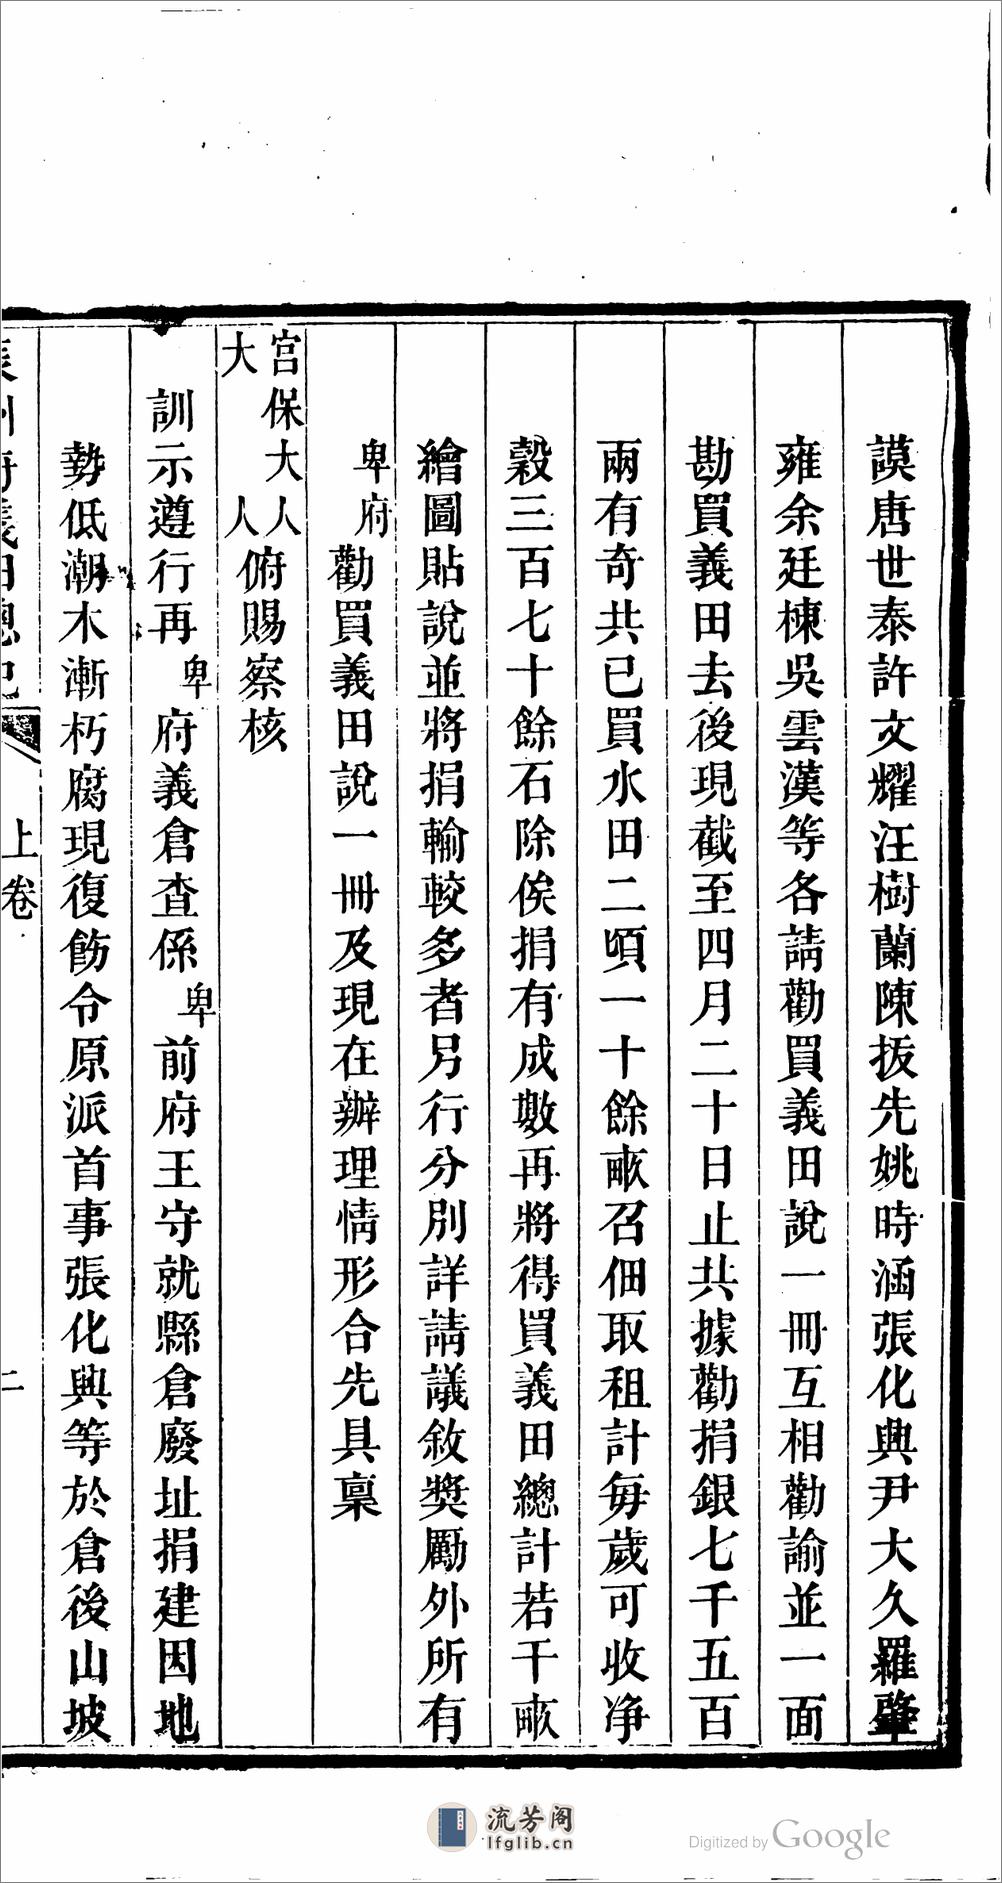 謨唐世泰許文耀汪樹蘭陳拔先姚時涵張化興尹大久羅肇
雍余廷棟吳雲漢等各請勸買義田說一冊互相勸諭並一面
勘買義田去後現截至四月二十日止共據勸捐銀七千五百
兩有奇共已買水田二頃一十餘畝召佃取租計每歲可收净
穀三百七十餘石除俟捐有成數再將得買義田總計若干畝
繪圖貼說並將捐輸較多者另行分別詳請議敘獎勵外所有
卑府勸買義田說一冊及現在辦理情形合先具稟
宮保大人
大人俯賜察核
訓示遵行再卑府義倉查係卑前府王守就縣倉廢址捐建因地
勢低潮木漸朽腐現復飭令原派首事張化興等於倉後山坡
府義田總記
上卷
二
流芳阁
lfglib.cn
Digitized by Google